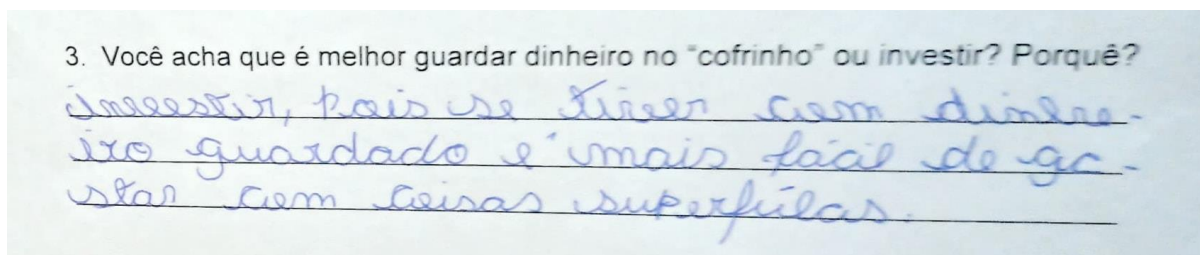 3. Você acha que é melhor guardar dinheiro no "cofrinho" ou investir? Porquê?
investir, pois se tiver com dinhe-
iro guardado é mais fácil de ga-
star com coisas superfúlas.